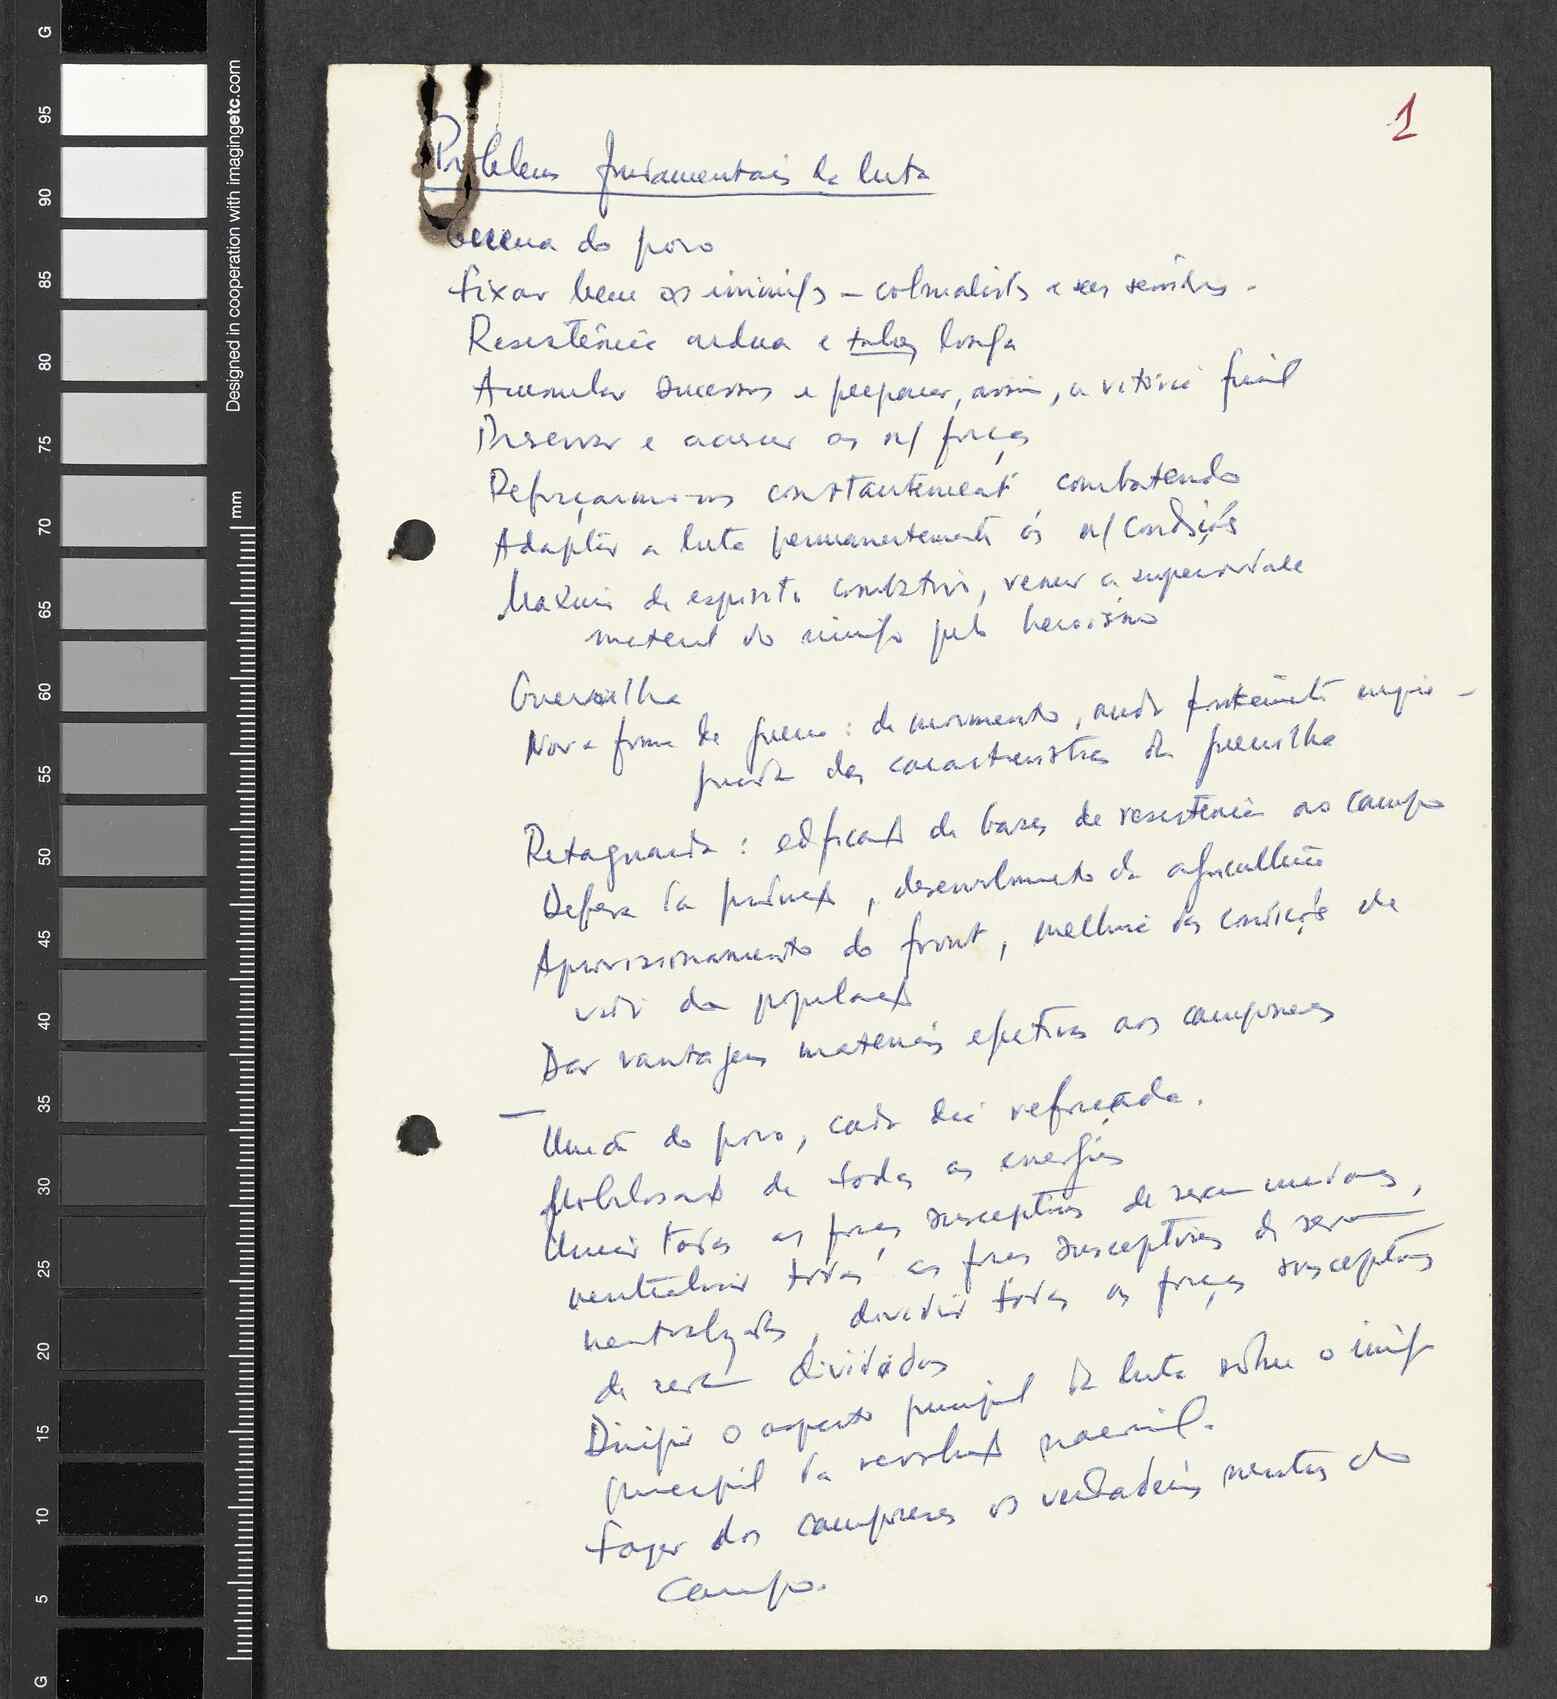 1
Problemas fundamentais da luta
Guerra do povo
Fixar bem os inimigos – colonialistas e seus servidores.
Resistência ardua e talvez longa
Acumular sucessos e preparar, assim, a vitória final
Preservar e acrescer as n/ forças
Reforçarmo-nos constantemente combatendo
Adaptar a luta permanentemente ás n/ condições
Maximo de espirito combativo, vencer a superioridade
material do inimigo pelo heroismo
Guerrilha
Nova forma de guerra: de movimento, ainda fortemente impre-
gnada das caracteristicas da guerrilha
Retaguarda: edificação de bases de resistencia no campo
Defesa da produção, desenvolvimento da agricultura
Aprovisionamento do front, melhoria das condições de
vida da população
Dar vantagens materiais efetivas aos camponeses
— União do povo, cada dia reforçada.
Mobilisação de todas as energias
Unir todas as forças susceptiveis de serem unidas,
neutralizar todas as forças susceptiveis de serem
neutralizadas, dividir todas as forças susceptiveis
de serem divididas
Dirigir o aspecto principal da luta sobre o inimigo
principal da revolução nacional.
Fazer dos camponeses os verdadeiros mestres do
campo.
G
95
90
85
80
75
70
65
60
55
50
45
40
35
30
25
20
15
10
5
G
Designed in cooperation with imagingetc.com
mm